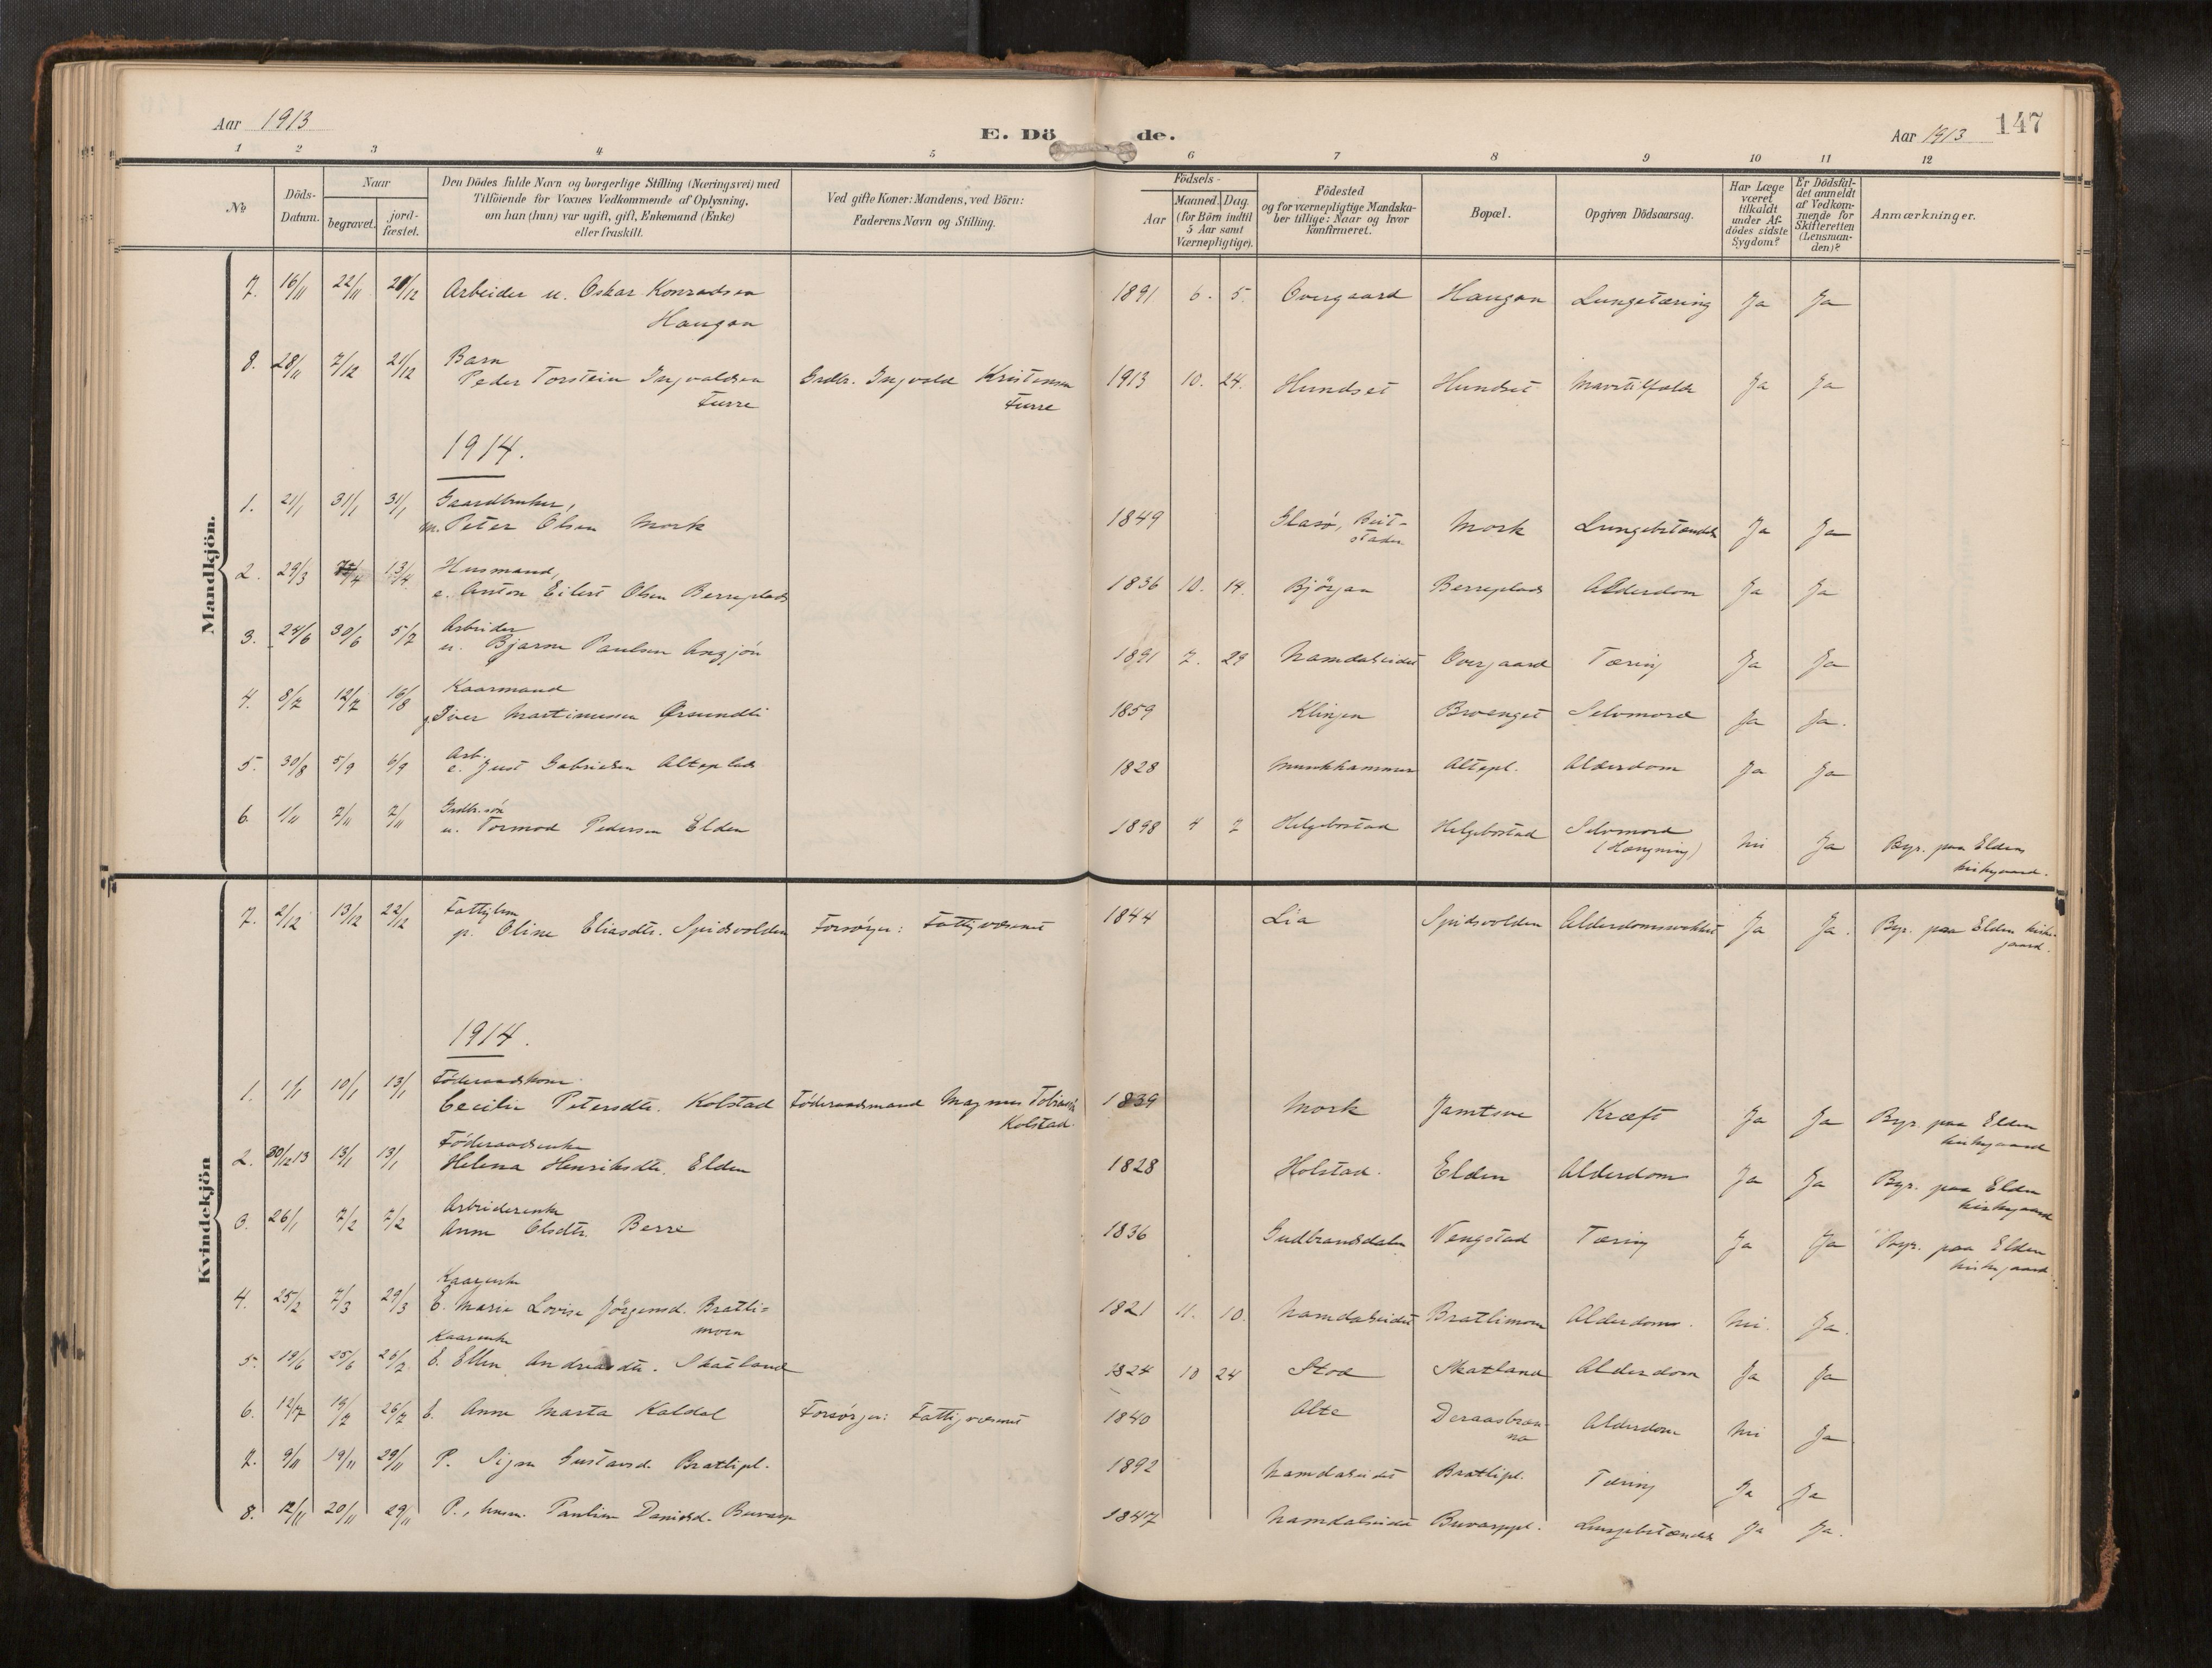 Aar 1913
E. Döde.
Aar 1913 147
1 2 3 4 5 6 7 8 9 10 11 12
No
Döds-Datum.
Naar
begravet.
jord-fæstet.
Den Dödes fulde Navn og borgerlige Stilling (Næringsvei) med
Tilföiende for Voxnes Vedkommende af Oplysning,
om han (hun) var ugift, gift, Enkemand (Enke)
eller fraskilt.
Ved gifte Koner: Mandens, ved Börn:
Faderens Navn og Stilling.
Födsels-
Aar
Maaned. Dag.
(for Börn indtil
5 Aar samt
Værnepligtige).
Födested
og for værnepligtige Mandska-
ber tillige: Naar og hvor
konfirmeret.
Bopæl.
Opgiven Dödsaarsag.
Har Læge
været
tilkaldt
under Af-
dödes sidste
Sygdom?
Er Dödsfal-
det anmeldt
af Vedkom-
mende for
Skifteretten
(Lensman-
den)?
Anmærkninger.
Mandkjön.
7. 16/11 22/11 21/12 Arbeider u. Oskar Konradsen 1891 6. 5. Overgaard Haugan Lungetæring Ja Ja
Haugan
8. 28/11 7/12 21/12 Barn
Peder Torstein Ingvaldsen Grdbr. Ingvald Kristensen 1913 10. 24. Hundset Hundset Ja Ja
Furre Furre
1914.
1. 21/1 31/1 31/1 Gaardbruker,
m. Peter Olsen Mork 1849 Glasö, Beit-
staden Mork Lungebetændels Ja Ja
2. 29/3 13/4 Husmand,
e. Anton Eilert Olsen Berreplads 1836 10. 14. Bjørgan Berreplads Alderdom Ja Ja
3. 24/6 30/6 5/7 Arbeider
u. Bjarne Paulsen 1891 7. 29 Namdalseidet Overgaard Tæring Ja Ja
4. 8/7 12/7 16/8 Kaarmand
g. Iver Martinussen Ørsundli 1859 Klingen Brænget Selvmord Ja Ja.
5. 30/8 5/9 6/9 Arb.
e. Just Gabrielsen Alteplads 1828 Munkhammer Altepl. Alderdom Ja Ja
6 1/11 7/11 7/11 Grdbr. søn
u. Tormod Pedersen Elden 1898 4 7 Helgebostad Helgebostad Selvmord
(Hængning) Nei Ja Bgr. paa Elden
kirkegaard.
Kvindekjön
7. 2/12 13/12 22/12 Fattiglem
p. Oline Eliasdtr. Spidsvolden Forsørger: Fattigvæsenet 1844 Lia Spidsvolden Alderdomssvækket Ja Ja. Bgr. paa Elden kirke-
gaard.
1914.
1. 1/1 10/1 13/1 Föderaadskone
Cecilie Petersdtr. Kolstad Föderaadsmand Magnus Tobiassen 1839 Mork Jamtsve Kræft Ja Ja Bgr. paa Elden
Kolstad. kirkegaard
2. 30/12 13 13/1 13/1 Föderaadsenke
Helena Henriksdtr. Elden 1828 Holstad. Elden Alderdom Ja Ja Bgr. paa Elden
kirkegaard
3. 26/1 7/2 7/2 Arbeiderenke
Anne Olsdtr. Berre 1836 Gudbrandsdalen Vengstad Tæring Ja Ja Bgr. paa Elden
kirkegaard
4. 25/2 7/3 29/3 Kaarenke
E. Marie Lovise Jörgensd. Bratli=
moen 1821 11. 10. Namdalseidet Bratlimoen Alderdom. Nei. Ja.
5. 19/6 25/6 26/7 Kaarenke
E. Ellen Andreasdtr. Skatland 1824 10 24 Stod Skatland Alderdom Ja Ja
6. 12/7 19/7 26/7 E. Anne Marta Kaldal Forsørger: Fattigvæsenet 1840 Alte Deraasbræn-
na Alderdom Nei Ja
7. 9/11 19/11 29/11 P. Signe Gustavsd. Bratlipl. 1892 Namdalseidet Bratlipl. Tæring Ja Ja
8. 12/11 20/11 29/11 P., Pauline Danielsd. 1847 Namdalseidet Lungebetændels Ja Ja.